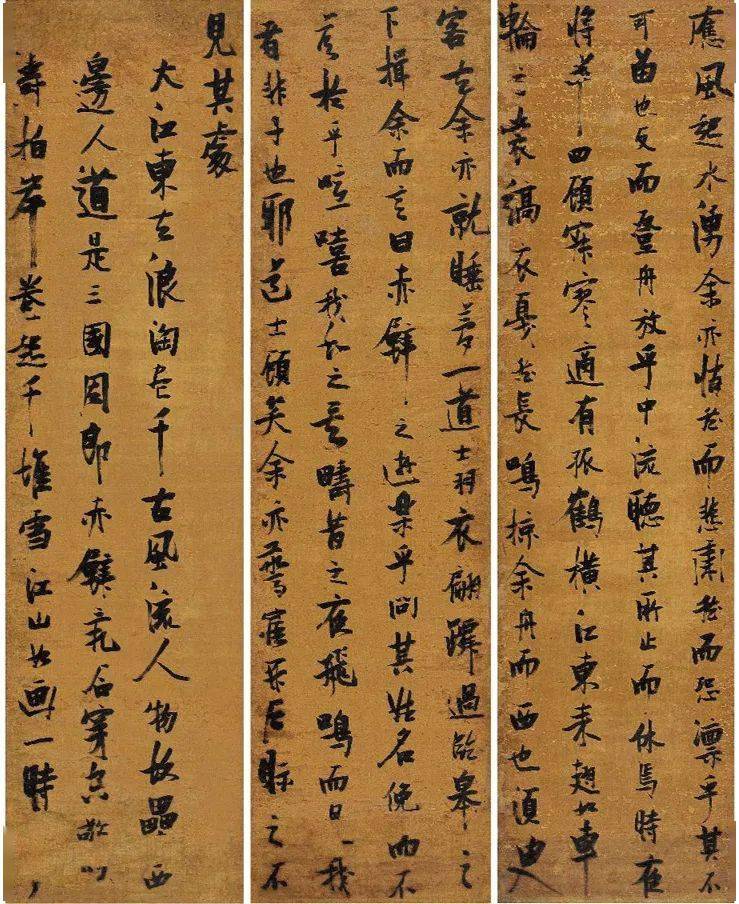 應風起水湧余亦悄然而悲肅然而恐凛乎其不
可留也反而登舟放乎中流聽其所止而休焉時夜
將半四顧寂寥適有孤鶴横江東来翅如車
輪玄裳縞衣戛然長鳴掠余舟而西也須臾
客去余亦就睡夢一道士羽衣翩躚過臨皋之
下揖余而言曰赤壁之遊樂乎問其姓名俛而不
言於乎噫嘻我知之矣疇昔之夜飛鳴而過我
者非子也耶道士顧笑余亦驚寤開户眎之不
見其處
大江東去浪淘盡千古風流人物故壘西
邊人道是三國周郎赤壁亂石穿空驚
濤拍岸卷起千堆雪江山如画一時